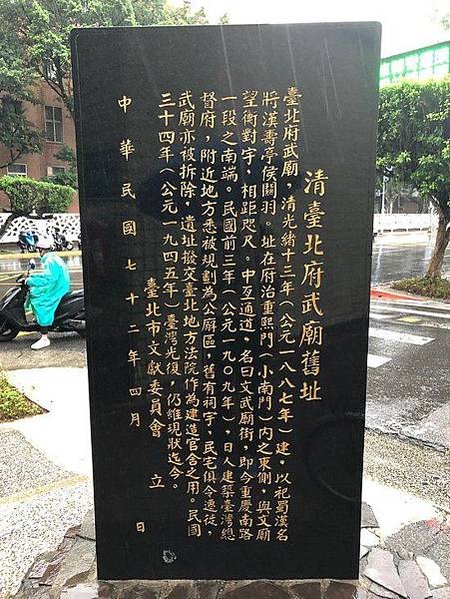 清臺北府武廟舊址
臺北府武廟，清光緒十三年（公元一八八七年）建，以祀蜀漢名
將漢壽亭侯關羽。址在府治重熙門（小南門）內之東側，與文廟
望衡對宇，相距咫尺。中互通道，名曰文武廟街，即今重慶南路
一段之南端。民國前三年（公元一九0九年），日人建築臺灣總
督府，附近地方悉被規劃為公廨區，舊有祠宇、民宅俱令遷徙，
武廟亦被拆除，遺址撥交臺北地方法院作為建造官舍之用。民國
三十四年（公元一九四五年）臺灣光復，仍維現狀迄今。
臺北市文獻委員會 立
中華民國七十二年四月 日